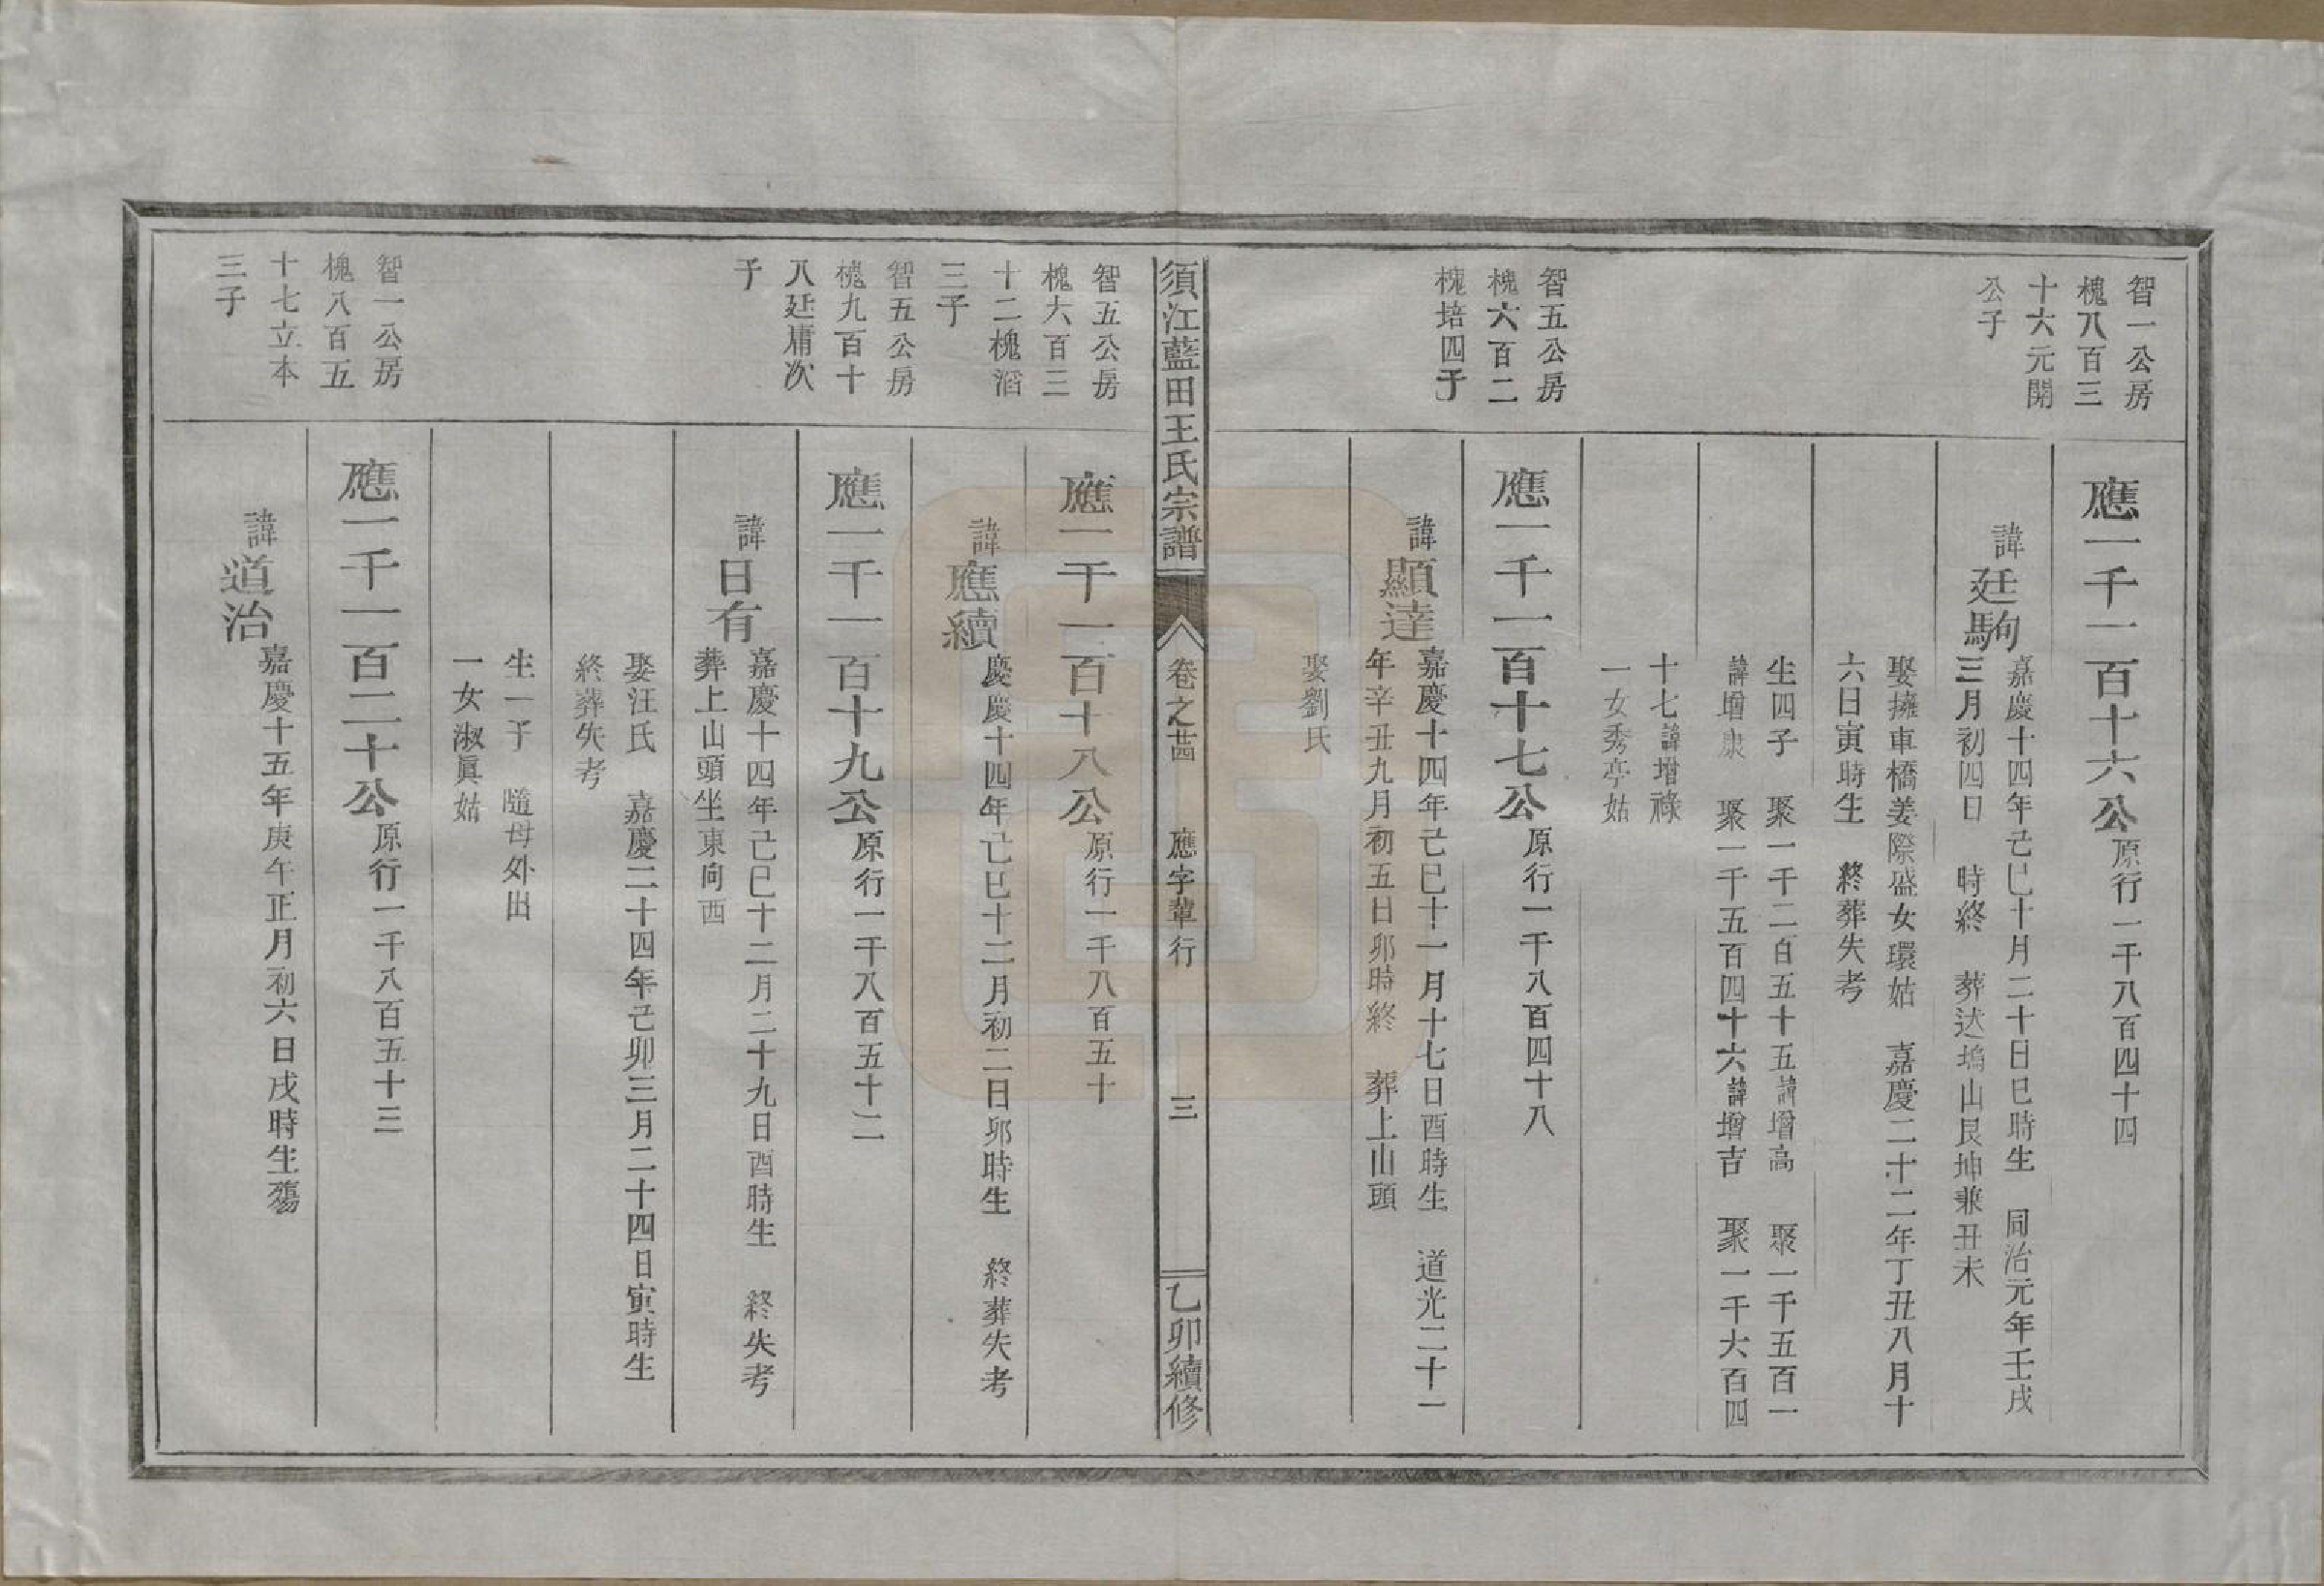 智一公房
槐八百三
十六元開
公子
應一千一百十六公原行一千八百四十四
諱廷駒
嘉慶十四年己巳十月二十日巳時生　同治元年壬戌
三月初四日　時終　葬迏塢山艮坤兼丑未
娶擁車橋姜際盛女環姑　嘉慶二十二年丁丑八月十
六日寅時生　終葬失考
生四子　聚一千二百五十五諱增高　聚一千五百一
諱增康　聚一千五百四十六諱增吉　聚一千六百四
十七諱增祿
一女秀亭姑
智五公房
槐六百二
槐培四子
應一千一百十七公原行一千八百四十八
諱顯達
嘉慶十四年己巳十一月十七日酉時生　道光二十一
年辛丑九月初五日卯時終　葬上山頭
娶劉氏
須江藍田王氏宗譜
卷之廿四　應字輩行　三
乙卯續修
智五公房
槐六百三
十二槐滔
三子
應一千一百十八公原行一千八百五十
諱應續
慶慶十四年己巳十二月初二日卯時生　終葬失考
智五公房
槐九百十
八廷庸次
子
應一千一百十九公原行一千八百五十二
諱日有
嘉慶十四年己巳十二月二十九日酉時生　終失考
葬上山頭坐東向西
娶汪氏　嘉慶二十四年己卯三月二十四日寅時生
終葬失考
生一子　隨母外出
一女淑眞姑
智一公房
槐八百五
十七立本
三子
應一千一百二十公原行一千八百五十三
諱道治
嘉慶十五年庚午正月初六日戌時生殤